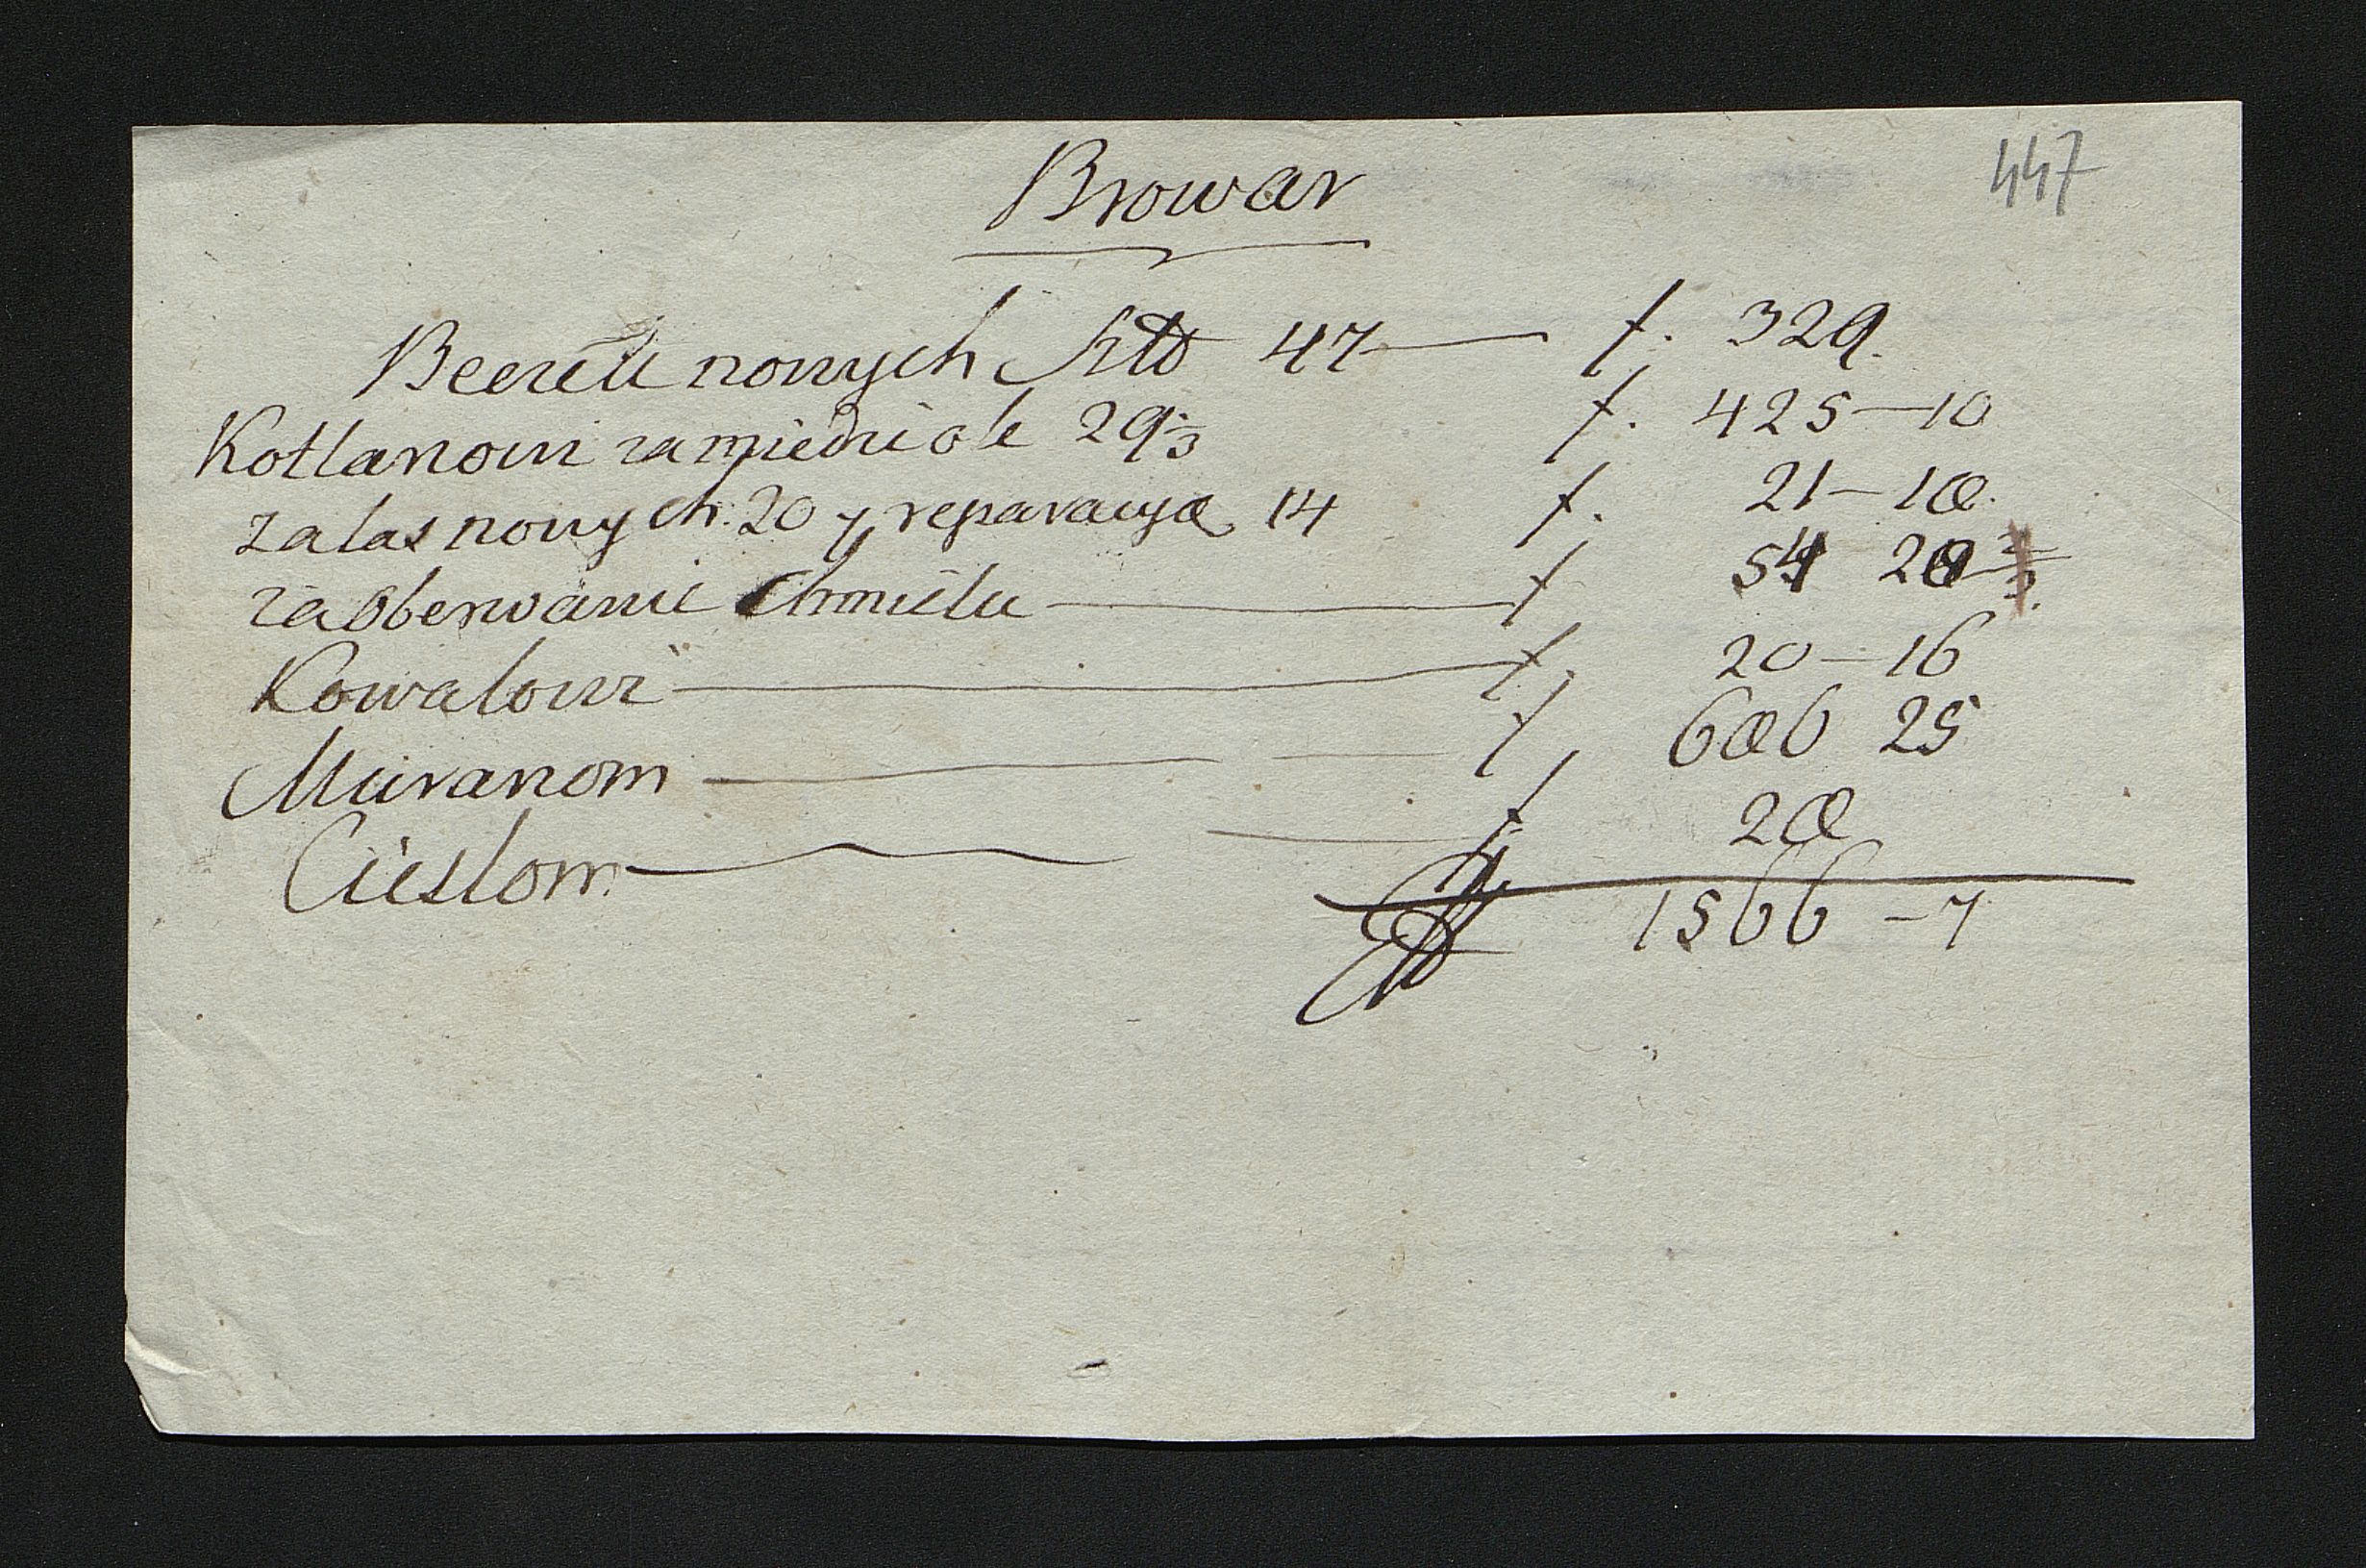 447
Browar
Beczek nowych sto 47 — f. 329.
Kotlarowi za miedzi ole 29⅓ f. 425—10
za las nowych. 20 y reparacya 14 f. 21—18.
za Oberwanie Chmielu — f 54 28
Kowalowi — f. 20—16
Murarom — f, 686 25
Cieslom — f. 28
1566—7